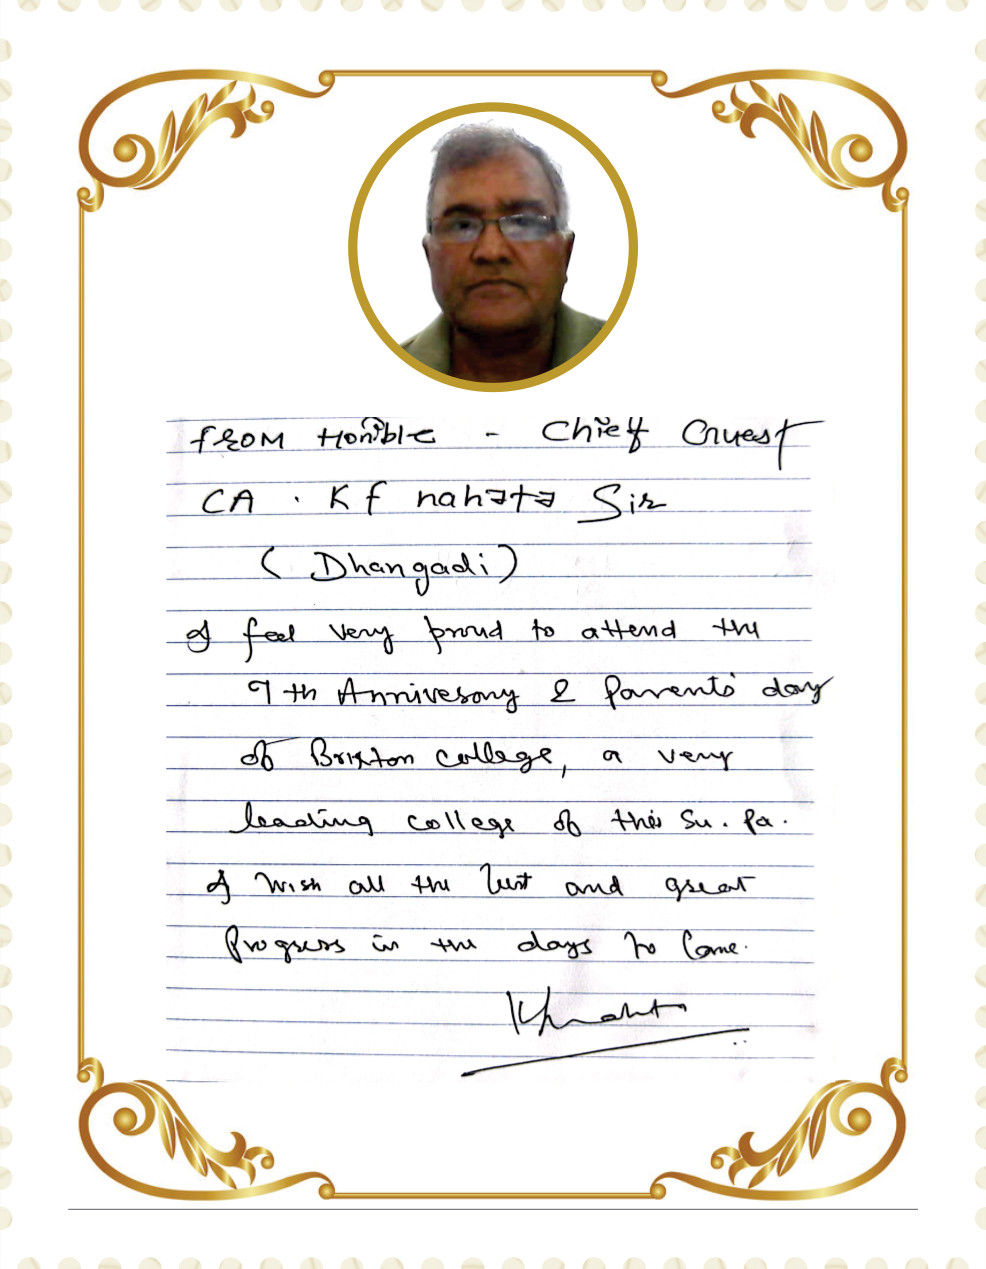 from Hon'ble - Chief Guest
CA. K f nahata Sir
(Dhangadi)
I feel very proud to attend the
9th Annivesory & Parents' day
of Brixton college, a very
leading college of this Su. Pa.
I wish all the best and great
Progress in the days to Come.